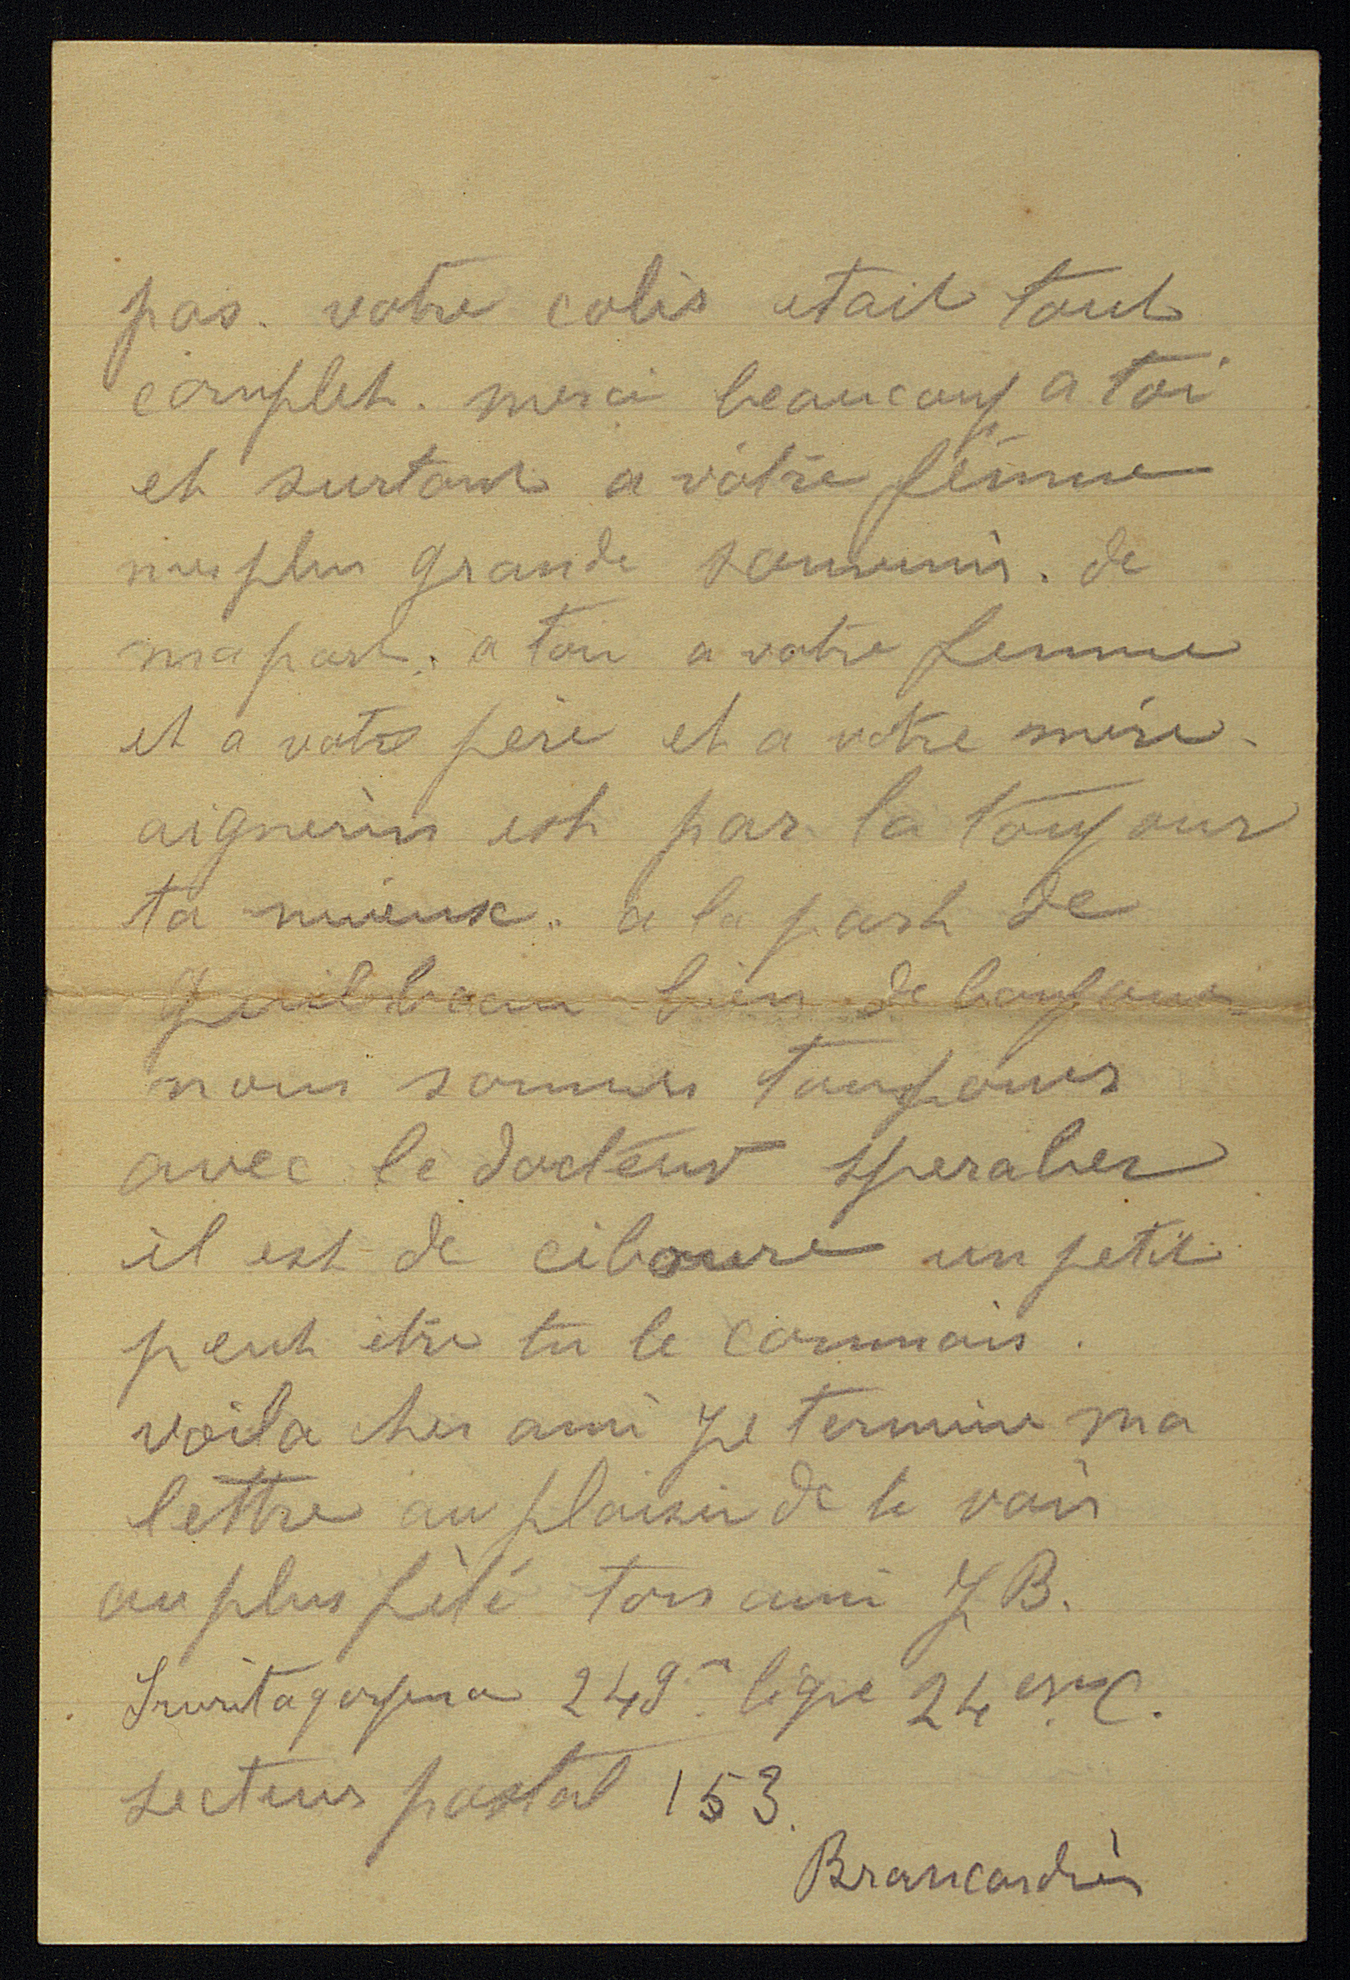 pas. votre colis etait tout
complet. merci beaucoup a toi
et surtout a votre femme
mes plus grande souvenir. de
ma part. a toi a votre femme
et a votre père et a votre mère.
est par la toujour
ta mieux. a la part de
bien de bonjour
nous sommes toujours
avec le docteur
il est de ciboure un petit
peut etre tu le connais.
voila cher ami je termine ma
lettre au plaisir de te voir
au plus ton ami J B.
249 ligne 24 C.
secteur postal 153.
Brancardier